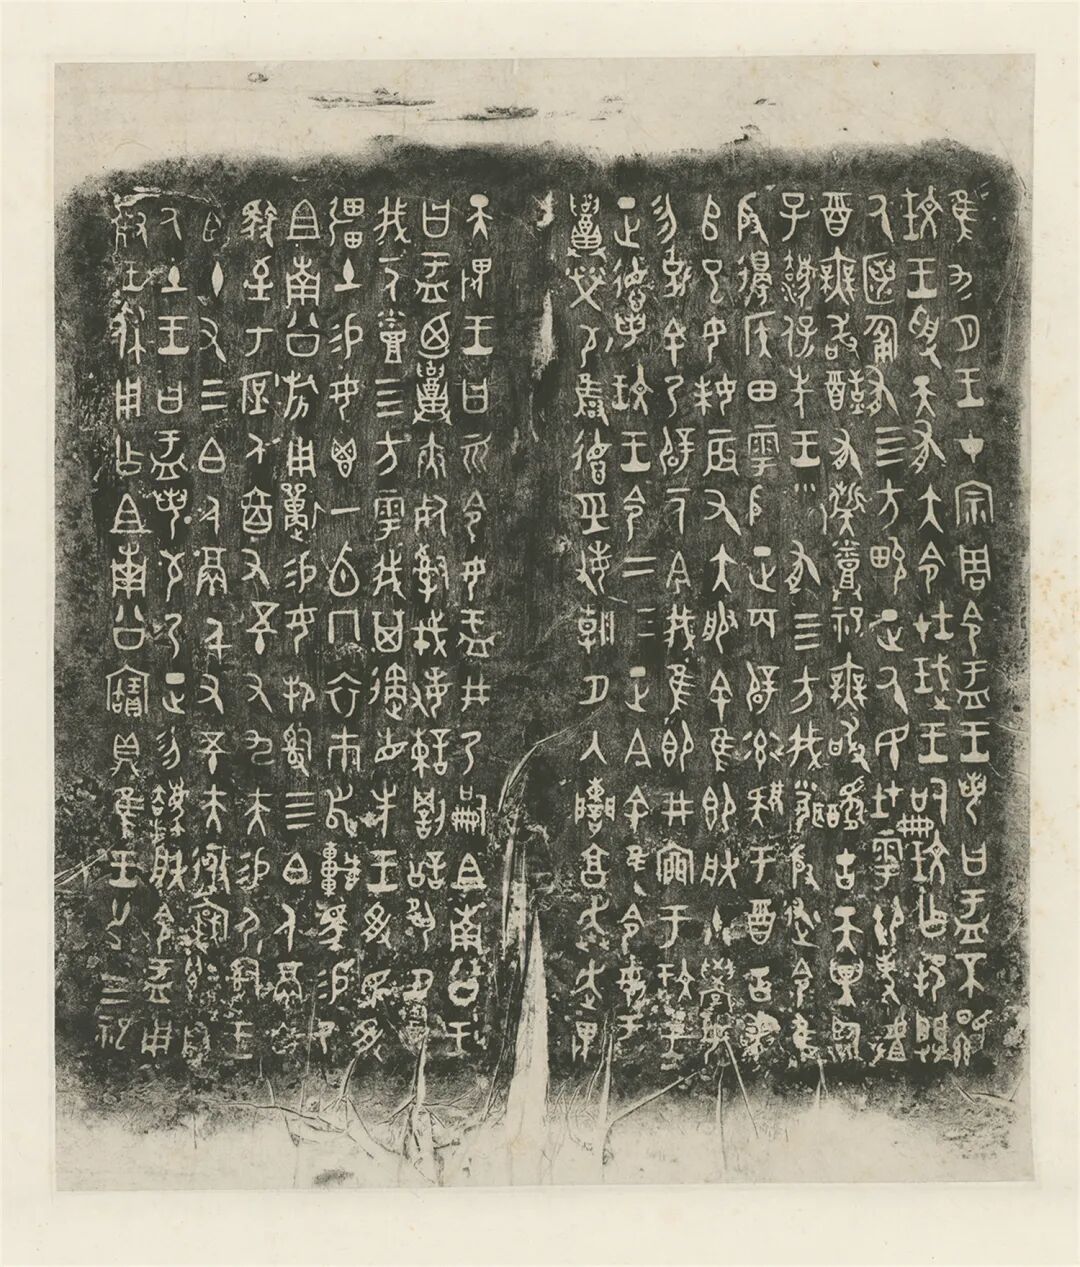 隹九月王才宗周令盂王若曰盂不顯
玟王受天有大令在珷王嗣玟乍邦闢
氒匿匍有四方畯正氒民在雩御事䖒
酉無敢酖有髭烝祀無敢醻古天異臨
子灋保先王有四方我聞殷述令隹
殷邊侯田雩殷正百辟率肄于酉古喪
𠂤巳女妹辰又大服余隹即朕小學女
勿克余乃辟一人今我隹即井廩于玟王
正德若玟王令二三正今余隹令女盂
召榮敬雝德巠敏朝夕入讕享奔走畏
天畏王曰𠀠令女盂井乃嗣且南公王
曰盂廼召夾死𤔲戎敏諫罰訟夙夕召
我一人烝四方雩我其遹省先王受民受
疆土易女鬯一卣冂衣巿舄車馬易乃
且南公旂用狩易女邦𤔲四白人鬲自
馭至于庶人六百又五十又九夫易尸𤔲王
臣十又三白人鬲千又五十夫遷自
氒土王曰盂若敬乃正勿灋朕令盂用
對王休用乍且南公寶鼎隹王廿又三祀